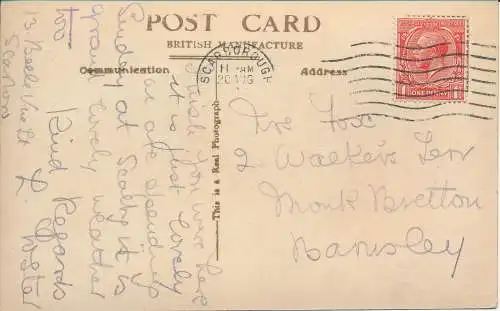 POST CARD
BRITISH MANUFACTURE
Communication
Address
SCARBOROUGH
11 - AM
This is a Real Photograph
ONE PENNY
Wish you were here
it is just lovely
we are spending
Sunday at Scalby it is
grand lovely weather
too Kind Regards
13
Scarboro
Mrs Fox
2 Walkers Terr
Monk Bretton
Barnsley